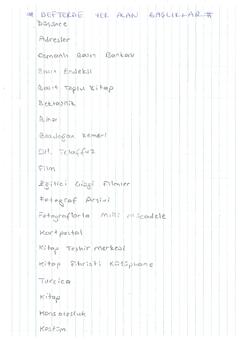 * DEFTERDE YER ALAN BAŞLIKLAR *
Düşünce
Adresler
Osmanlı Basın Bankası
Basın Endeksi
Basit Toplu Kitap
Bektaşilik
Bina
Bozdoğan Kemeri
Dil Telaffuz
Film
Eğitici Çizgi Filmler
Fotoğraf Arşivi
Fotoğraflarla Milli Mücadele
Kartpostal
Kitap Teşhir Merkezi
Kitap Fihristi Kütüphane
Turcica
Kitap
Konsolosluk
Kostüm